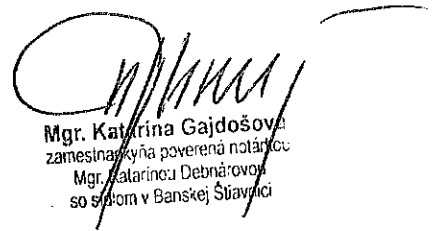 Mgr. Katarína Gajdošová
zamestnankyňa poverená notárkou
Mgr. Katarínou Debnárovou
so sídlom v Banskej Štiavnici